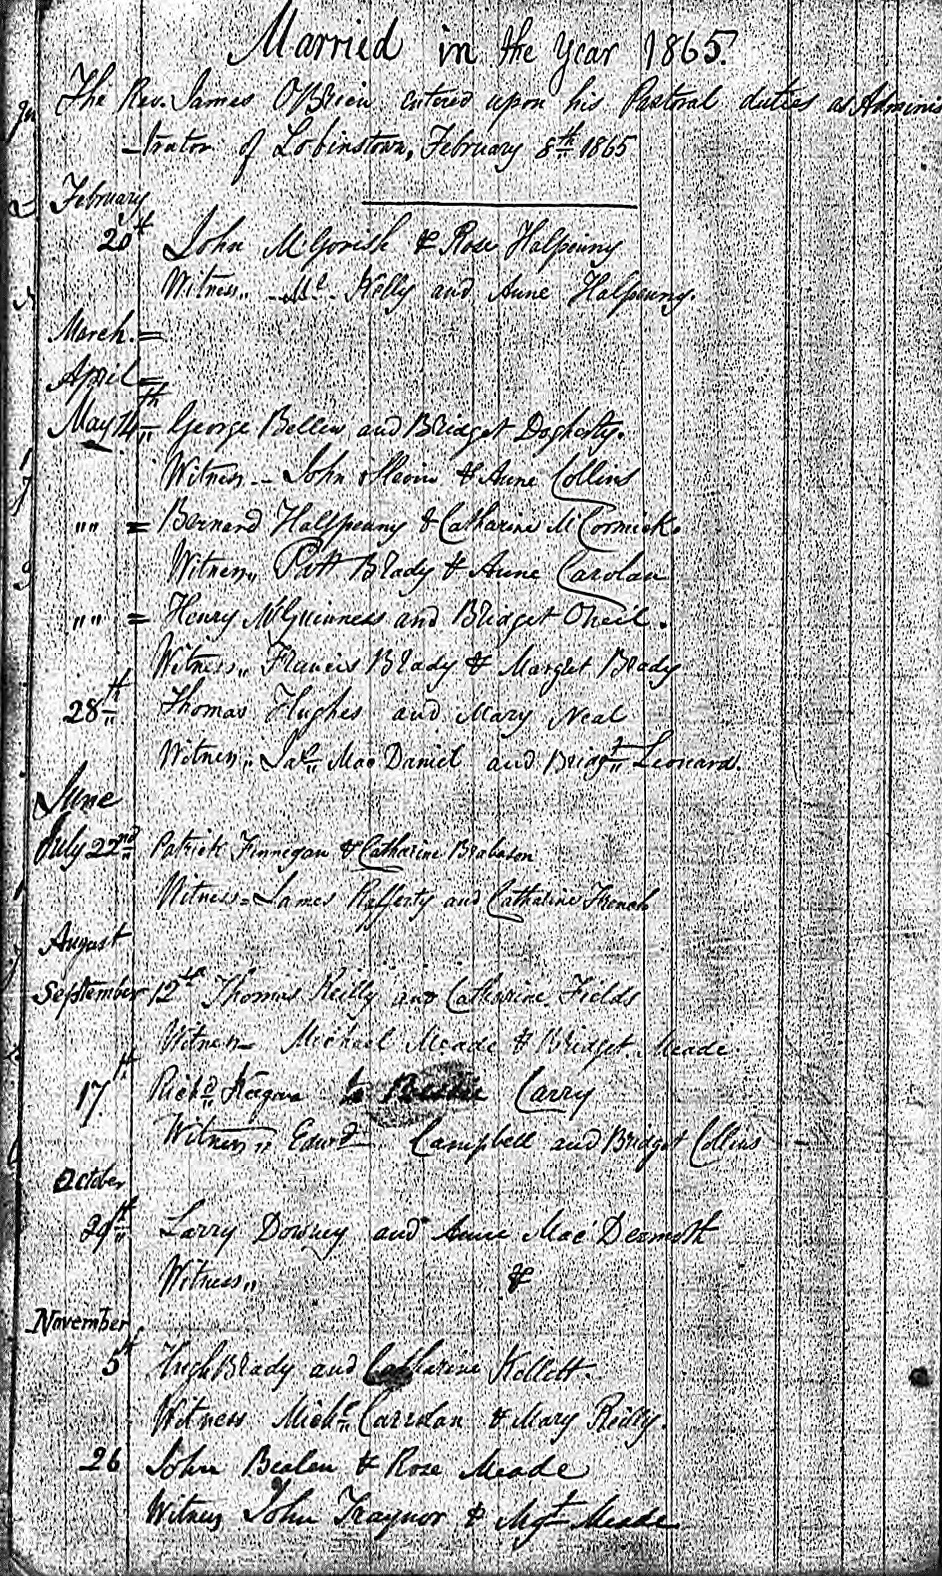 Married in the year 1865.
The Rev. James OBrien entered upon his Pastoral duties as Adminis
-trator of Lobinstown, February 8th 1865
February
20th John McGorish & Rose Halpenny
Witness,, Kelly and Anne Halpenny.
March. =
April =
May 14th George Bellew and Bridget Dogherty.
Witness -- John Slevin & Anne Collins
"" = Bernard Halfpenny & Catharine McCormick.
Witness,, Patt Brady & Anne Carolan
"" = Henry McGuinness and Bridget Oneil.
Witness,, Francis Brady & Margret Brady
28th Thomas Hughes and Mary Neal
Witness,, Jas Mac Daniel and Bridgt Leonard.
June
July 22nd Patrick Finnegan & Catharine Brabason
Witness = James Rafferty and Catharine French
August
September 12th Thomas Reilly and Catherine Fields
Witness Michael Meade & Bridget Meade
17th Richd Keegan to Carry
Witness,, Edwd Campbell and Bridget Collins
October
29th Larry Downey and Anne Mac Dermoth
Witness,, &
November
5th Hugh Brady and Catharine Kellett.
Witness Michl Carrolan & Mary Reilly.
26 John Bealen & Rose Meade
Witness John Traynor & Mgt Meade